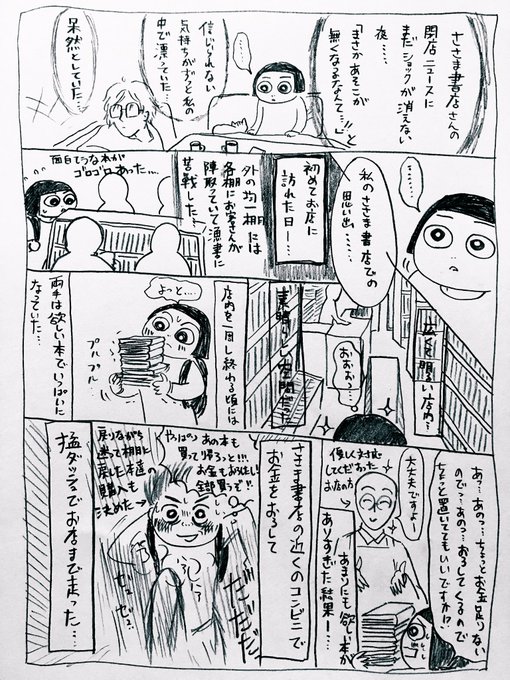 ささま書店さんの
閉店ニュースに
まだショックが消えない
夜……
「まさかあそこが
無くなるなんて…」と
信じられない
気持ちがずっと私の
中で漂っていて…
呆然としていた…
………
私のささま書店での
思い出………
初めてお店に
訪れた日ー…
外の均一棚には
各棚にお客さんが
陣取っていて漁書に
苦戦した…
面白そうなのが
ゴロゴロあった…
広くて明るい店内…
素晴らしい空間だった
おぉぉ…
店内を一周し終わる頃には
よっと…
プルプル
両手は欲しい本でいっぱいに
なっていた…
あっ…あのっ…ちょっとお金足りない
のでっ…あのっ…おろしてくるので
ちょっと置いててもいいですか!?
大丈夫ですよー
優しく対応
してくださった
お店の方
あまりにも欲しい本が
ありすぎた結果ー…
ささま書店の近くのコンビニで
お金をおろして
やっぱりあの本も
買って帰ろっと!!!
お金もおろしたし!
全部買うぞ!!
戻りながら
迷って棚に
戻した本達の
購入も
決めた
だだだだ
ゼェ
ゼェ…
猛ダッシュでお店まで走った…